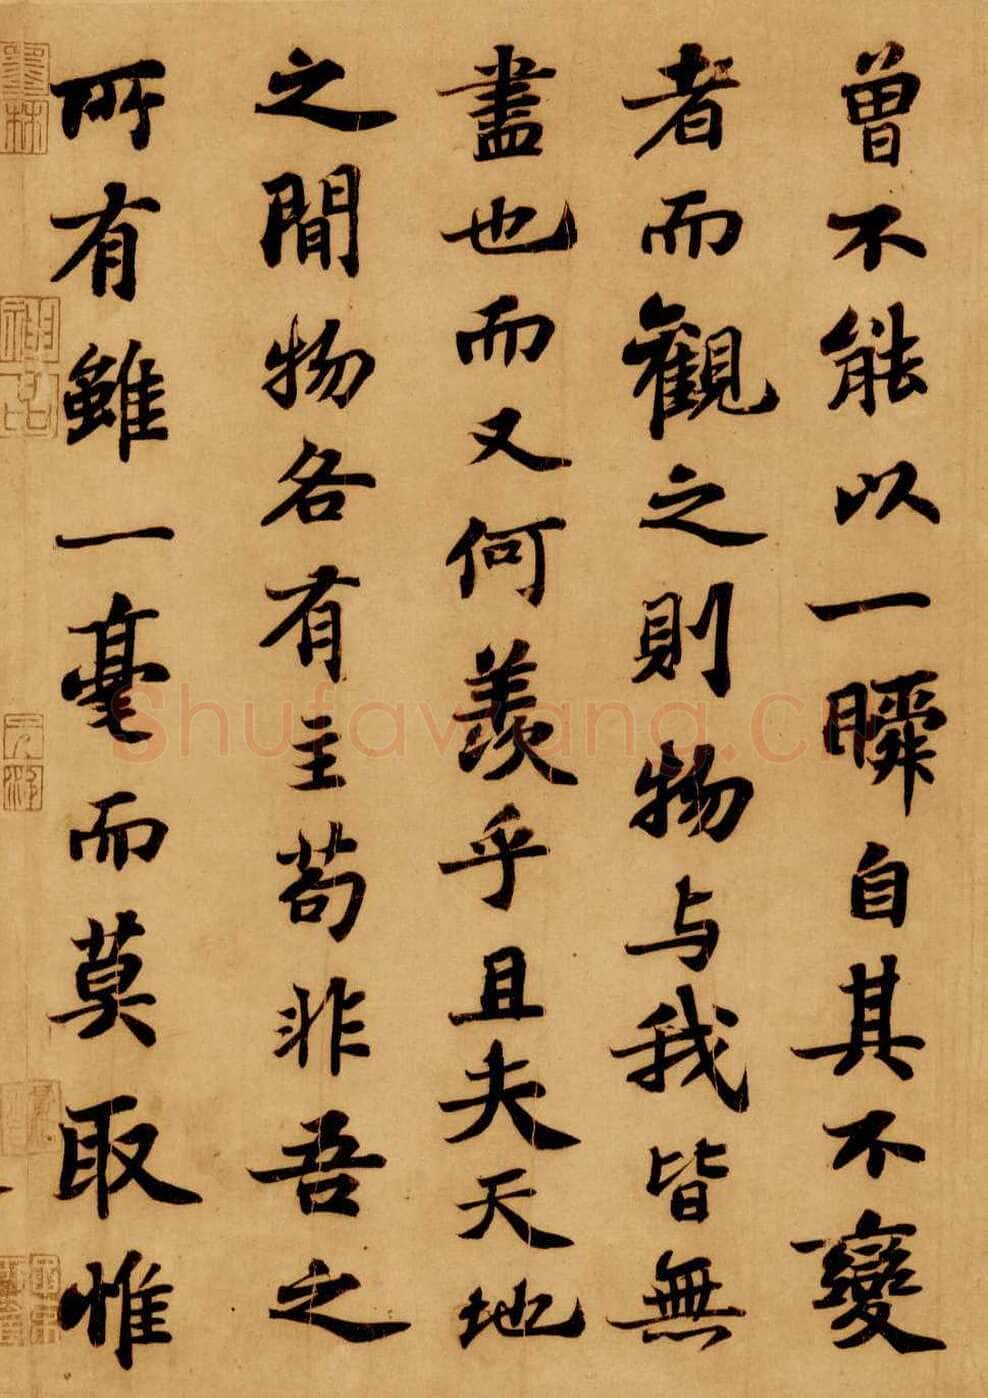 曾不能以一瞬自其不變
者而觀之則物与我皆無
盡也而又何羨乎且夫天地
之間物各有主苟非吾之
所有雖一毫而莫取惟
Shufawang.cn